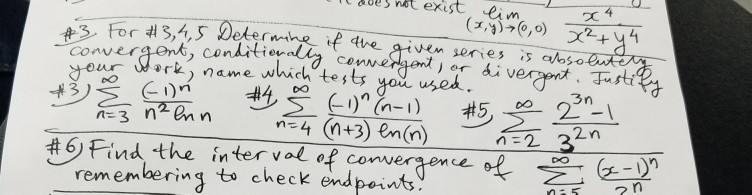 does not exist lim (x,y)→(0,0) x^4 / (x^2 + y^4)
#3, For #3,4,5 Determine if the given series is absolutely
convergent, conditionally convergent, or divergent. Justify
your work, name which tests you used.
#3) ∞ Σ n=3 (-1)^n / (n^2 ln n) #4, ∞ Σ n=4 (-1)^n (n-1) / ((n+3) ln(n)) #5, ∞ Σ n=2 (2^{3n} - 1) / 3^{2n}
#6) Find the interval of convergence of ∞ Σ n=5 (x-1)^n / 2^n
remembering to check endpoints.